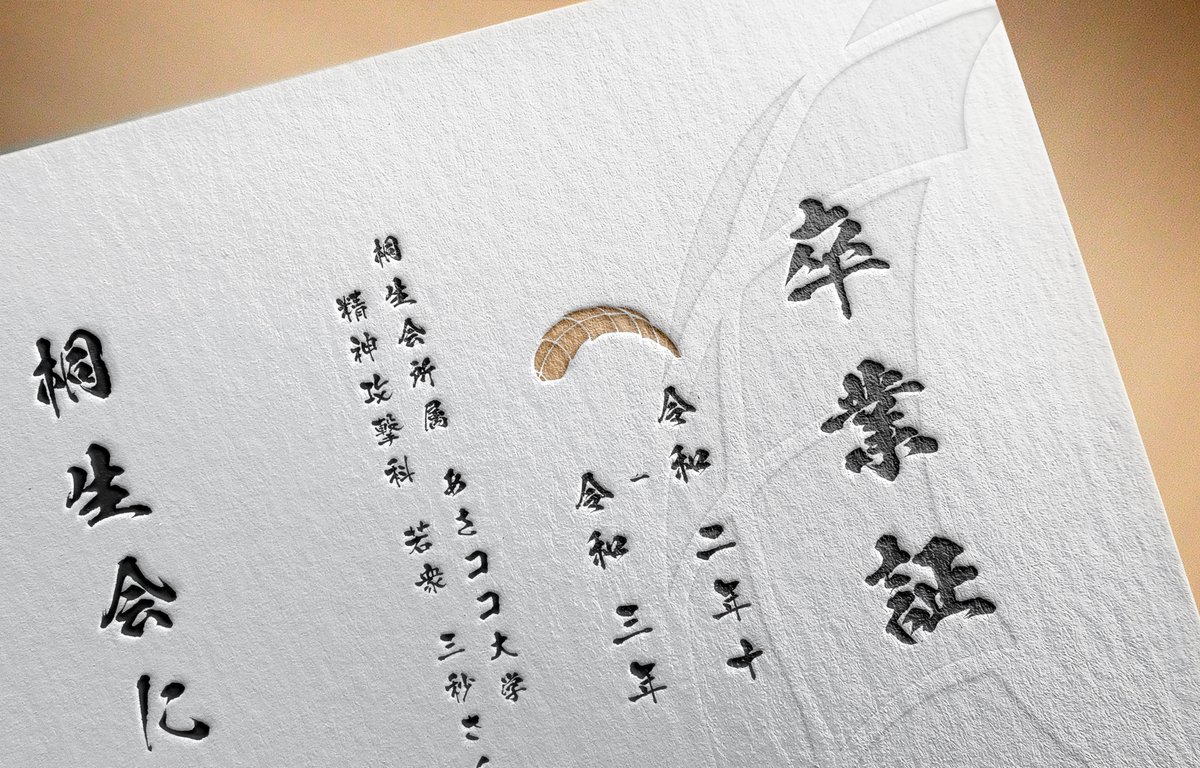 卒業証
令和二年十
一
令和三年
桐生会所属 あさココ大学
精神攻撃科 若衆 三秒さ
桐生会に